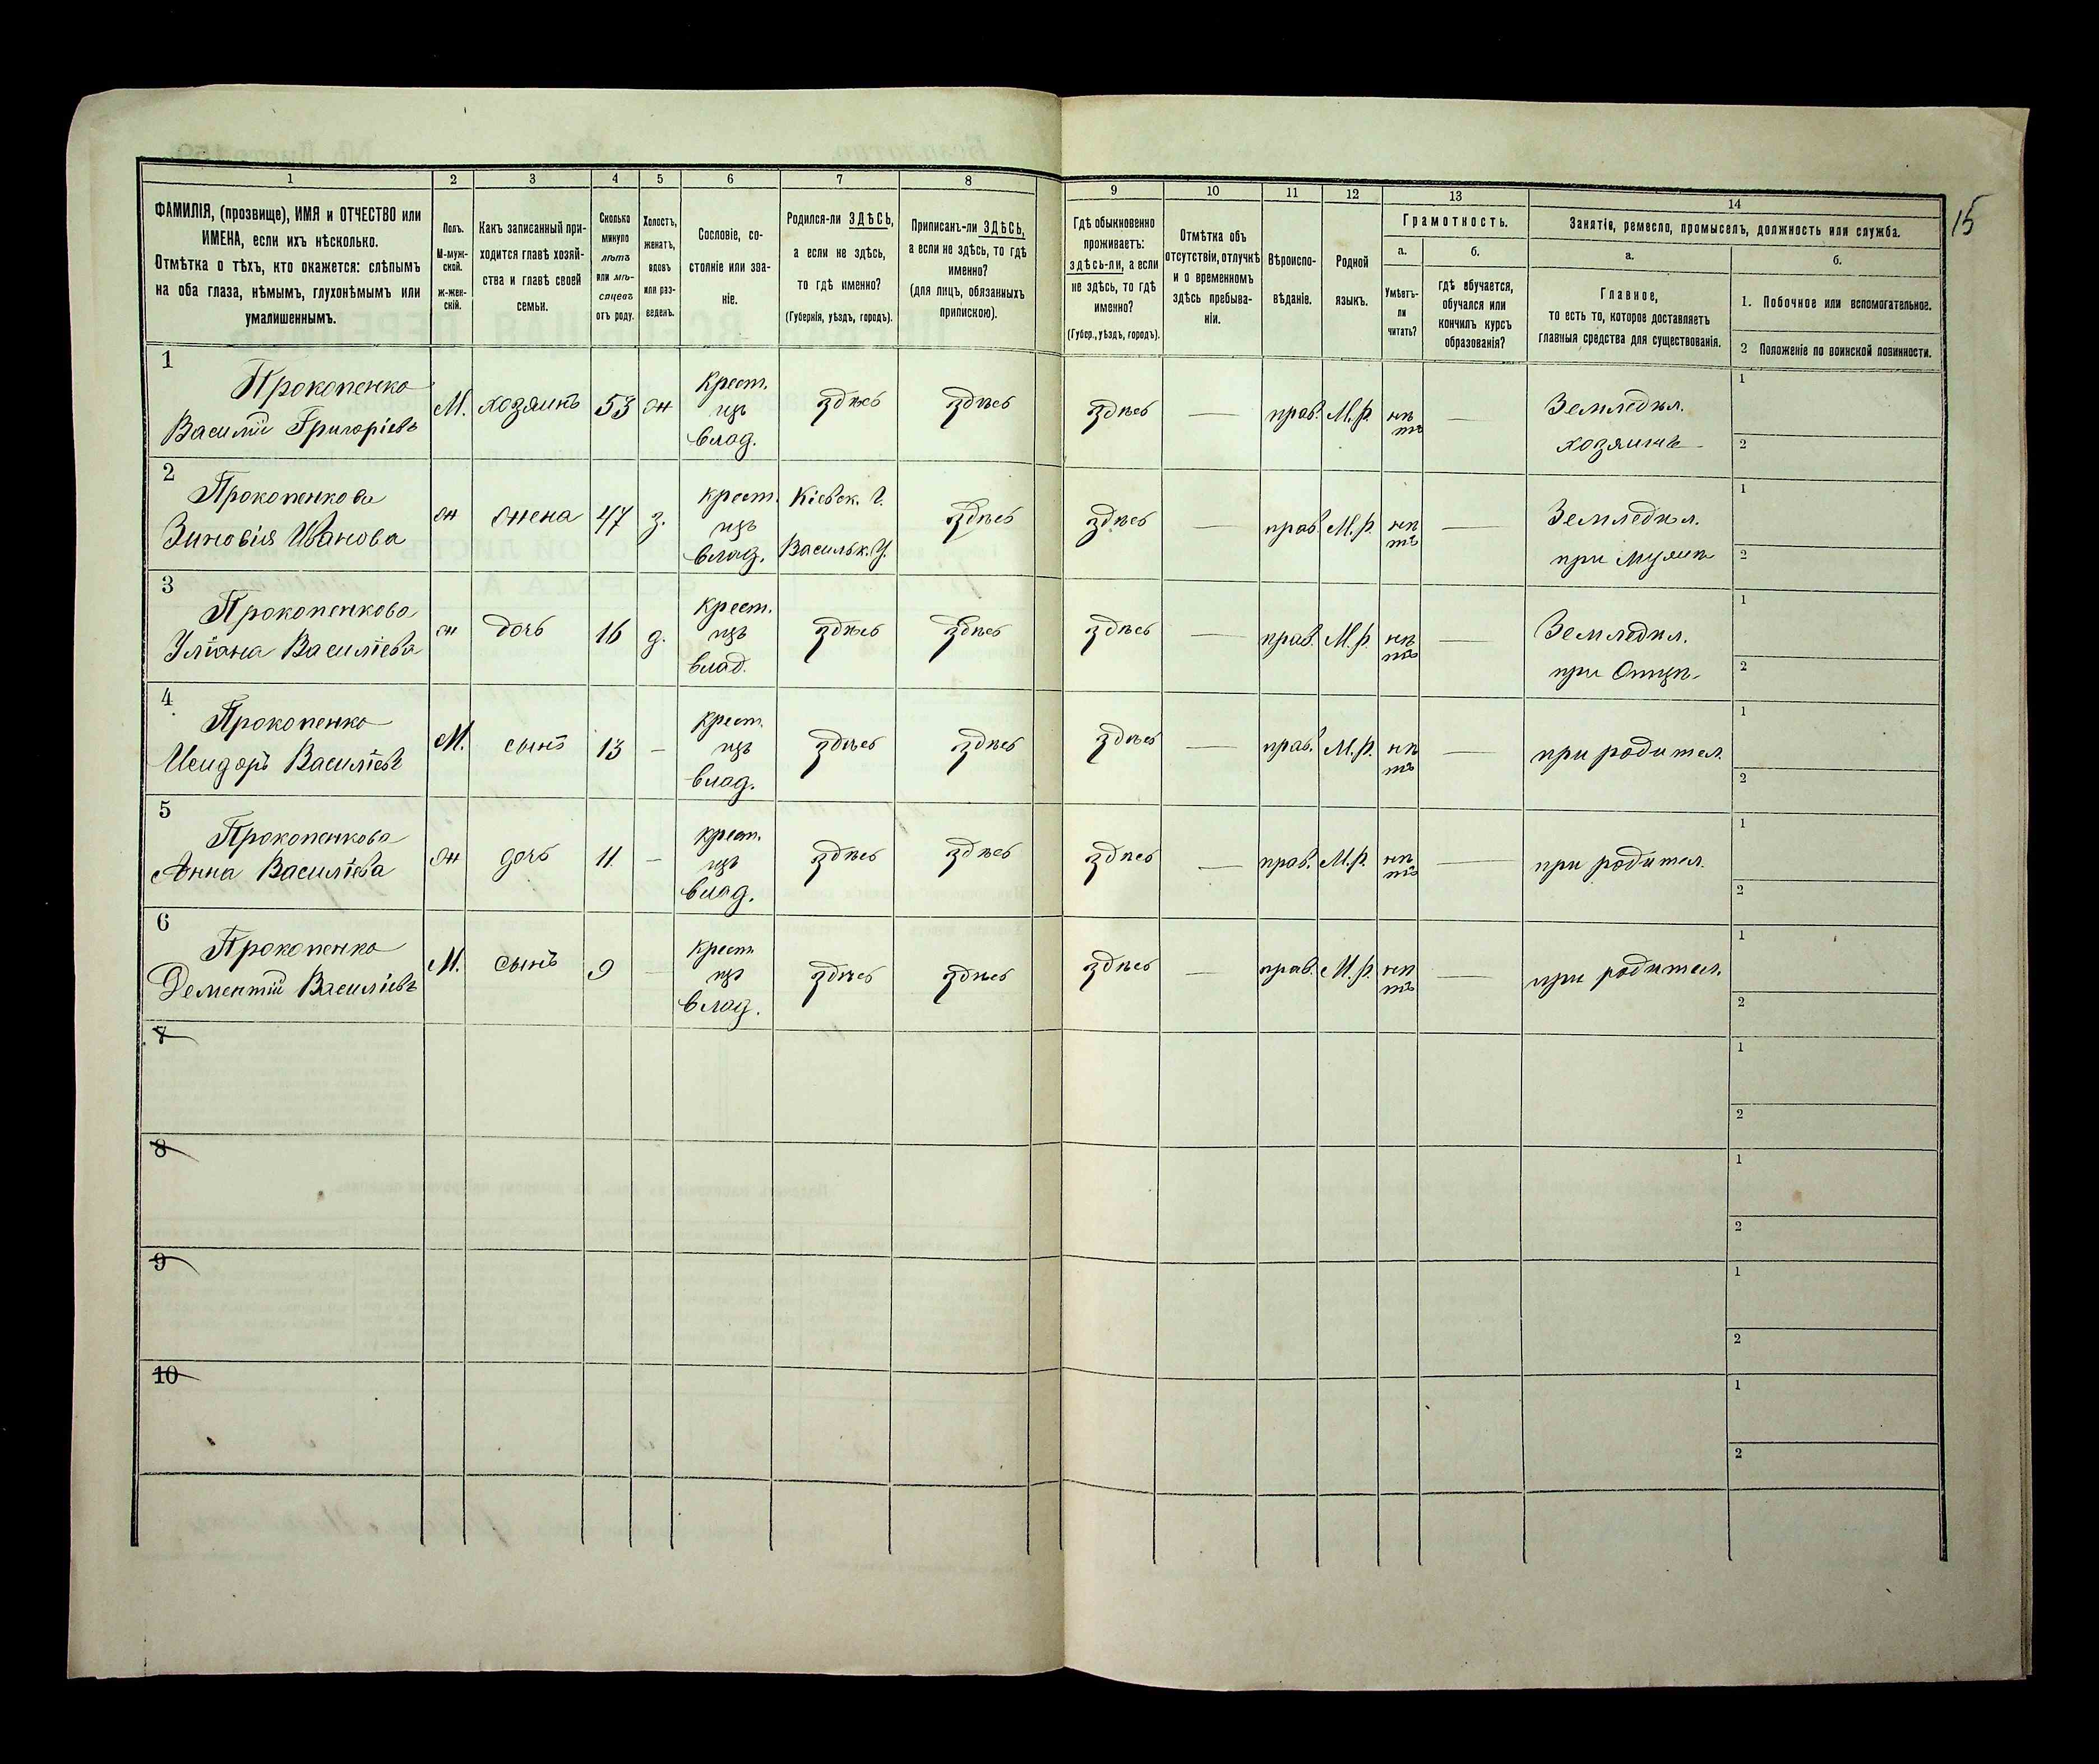 15
1 2 3 4 5 6 7 8 9 10 11 12 13 14
ФАМИЛІЯ, (прозвище), ИМЯ и ОТЧЕСТВО или
ИМЕНА, если ихъ нѣсколько.
Отмѣтка о тѣхъ, кто окажется: слѣпымъ
на оба глаза, нѣмымъ, глухонѣмымъ или
умалишеннымъ.
Полъ.
М-муж-
ской.
ж-жен-
скій.
Какъ записанный при-
ходится главѣ хозяй-
ства и главѣ своей
семьи.
Сколько
минуло
лѣтъ
или мѣ-
сяцевъ
отъ роду.
Холостъ,
женатъ,
вдовъ
или раз-
веденъ.
Сословіе, со-
стояніе или зва-
ніе.
Родился-ли ЗДѢСЬ,
а если не здѣсь,
то гдѣ именно?
(Губернія, уѣздъ, городъ).
Приписанъ-ли ЗДѢСЬ,
а если не здѣсь, то гдѣ
именно?
(для лицъ, обязанныхъ
припискою).
Гдѣ обыкновенно
проживаетъ:
здѣсь-ли, а если
не здѣсь, то гдѣ
именно?
(Губер., уѣздъ, городъ).
Отмѣтка объ
отсутствіи, отлучкѣ
и о временномъ
здѣсь пребыва-
ніи.
Вѣроиспо-
вѣданіе.
Родной
языкъ.
Грамотность.
а.
Умѣетъ-
ли
читать?
б.
гдѣ обучается,
обучался или
кончилъ курсъ
образованія?
Занятія, ремесло, промыселъ, должность или служба.
а.
Главное,
то есть то, которое доставляетъ
главныя средства для существованія.
б.
1. Побочное или вспомогательное.
2 Положеніе по воинской повинности.
1
Прокопенко
Василій Григоріевъ
М. хозяинъ 53 ж
Крест.
изъ
влад.
здѣсь здѣсь здѣсь — прав. М.р.
нѣ
тъ
—
Земледѣл.
хозяинъ
1
2
2
Прокопенкова
Зиновія Иванова
ж жена 47 з.
крест.
изъ
влад.
Кіевск. г.
Васильк. у.
здѣсь здѣсь — прав. М.р.
нѣ
тъ
—
Земледѣл.
при мужѣ
1
2
3
Прокопенкова
Уліана Василіева
ж дочь 16 д.
Крест.
изъ
влад.
здѣсь здѣсь здѣсь — прав. М.р.
нѣ
тъ
—
Земледѣл.
при Отцѣ
1
2
4
Прокопенко
Исидоръ Василіевъ
М. сынъ 13 —
крест.
изъ
влад.
здѣсь здѣсь здѣсь — прав. М.р.
нѣ
тъ
—
при родител.
1
2
5
Прокопенкова
Анна Василіева
ж дочь 11. —
крест.
изъ
влад.
здѣсь здѣсь здѣсь — прав. М.р.
нѣ
тъ
—
при родител.
1
2
6
Прокопенко
Дементій Василіевъ
М. сынъ 9 —
крест
изъ
влад.
здѣсь здѣсь здѣсь — прав. М.р.
нѣ
тъ
—
при родител.
1
2
7
1
2
8
1
2
9
1
2
10
1
2